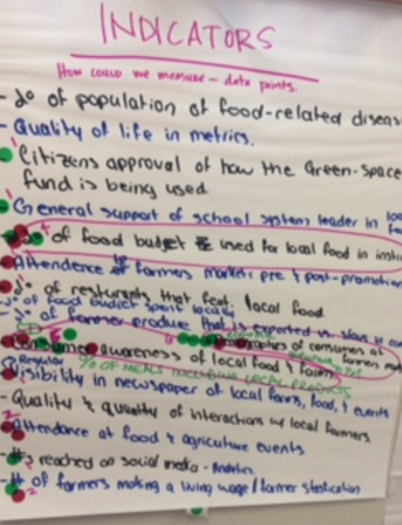 INDICATORS
How could we measure - data points.
- % of population of food-related diseas
- Quality of life in metrics.
Citizens approval of how the Green-Space
fund is being used
General support of school system leader in loc
% of food budget used for local food in insti
Attendence farmers market: pre & post-promotion
% of resturants that feat. local food
% of food budget spent locally
- % of farmer produce that is exported vs. stays in
of consumers at
farmers
Consumer awareness of local food & farms
% OF MEALS INCLUDING LOCAL PRODUCTS
Regular
Visibility in newspaper of local farms, food, & events
- Quality & quantity of interactions w/ local farmers
2
Attendance at food & agriculture events
#s reached on social media - Analytics
- # of farmers making a living wage / farmer
2